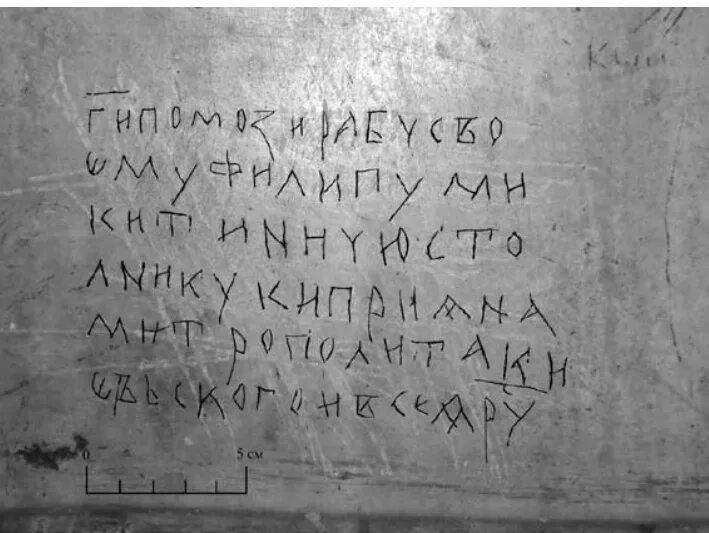 Г҃ИПОМОЗИРАБУСВО
ЄМУФИЛИПУМИ
КИТИНИЧЮСТО
ЛНИКУКИПРИѦНА
МИТРОПОЛИТАКИ
ЄВЬСКОГОИВСЕѦРУ
0 5 см